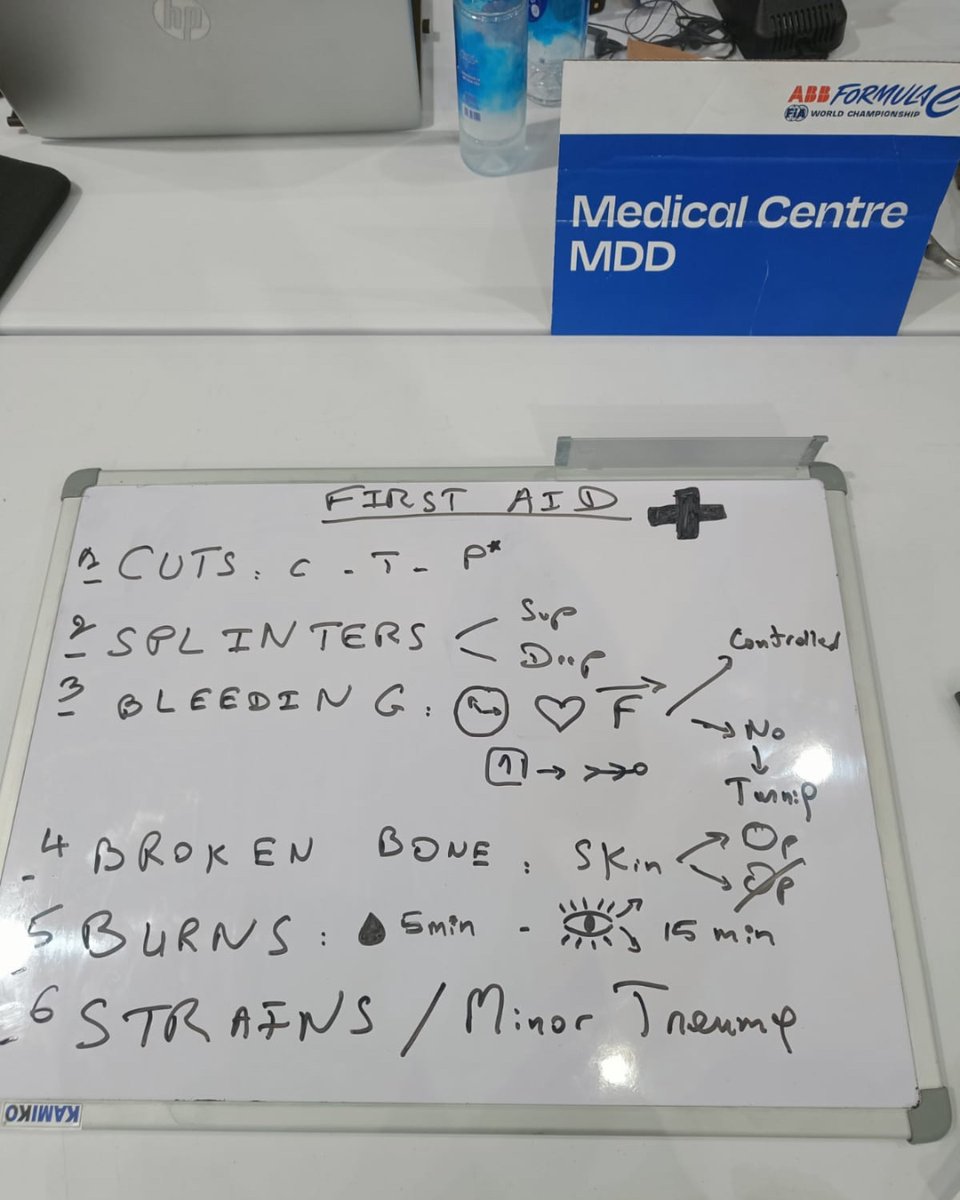 hp
ABB FORMULA E
FIA WORLD CHAMPIONSHIP
Medical Centre
MDD
FIRST AID
1 CUTS: C - T - P*
2 SPLINTERS
Sup
Deep
3 BLEEDING: F
Controlled
No
4 BROKEN BONE: Skin
Op
Op
5 BURNS: 5min - 15 min
6 STRAINS / Minor
KAMIKO